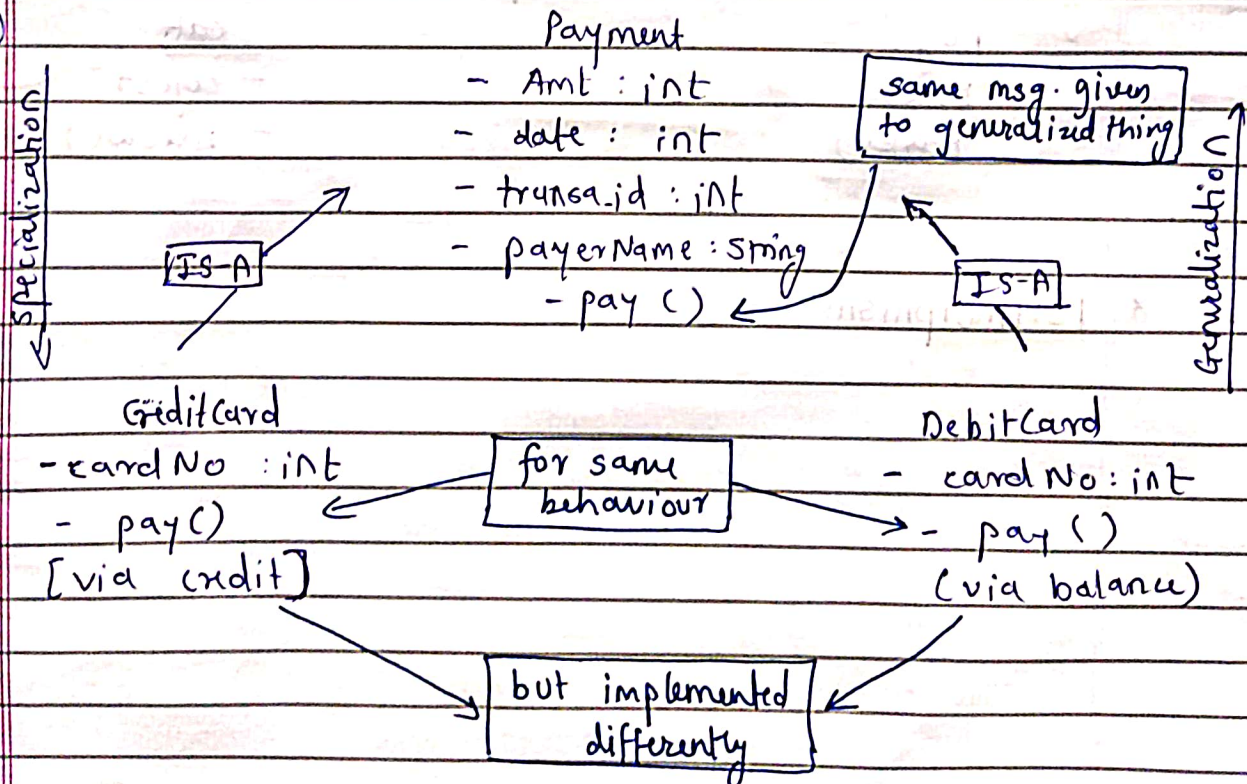 Payment
- Amt : int
- date : int
- transa_id : int
- payerName : String
- pay ()
same msg. given
to generalized thing
Specialization
Generalization
IS-A
IS-A
CreditCard
- cardNo : int
- pay()
[via credit]
for same
behaviour
DebitCard
- cardNo : int
- pay ()
(via balance)
but implemented
differently